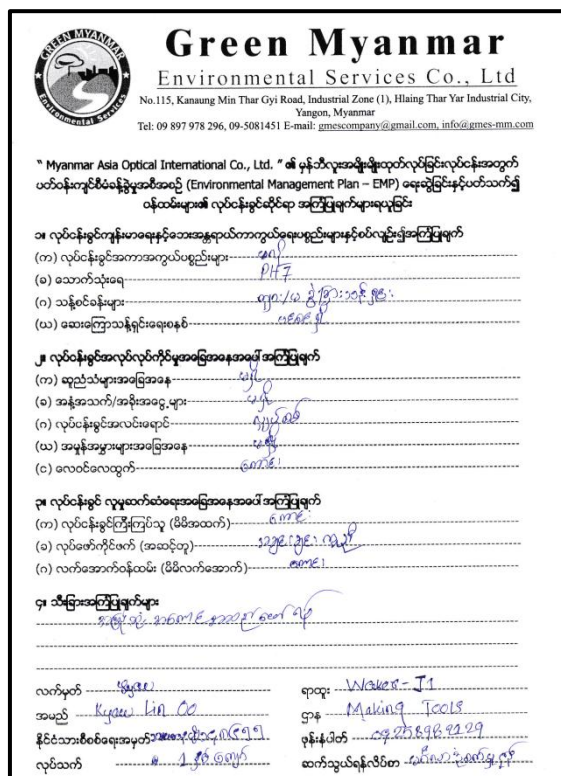 GREEN MYANMAR
Environmental Services
Green Myanmar
Environmental Services Co., Ltd
No.115, Kanaung Min Thar Gyi Road, Industrial Zone (1), Hlaing Thar Yar Industrial City,
Yangon, Myanmar
Tel: 09 897 978 296, 09-5081451 E-mail: gmescompany@gmail.com, info@gmes-mm.com
" Myanmar Asia Optical International Co., Ltd. " ၏ မှန်ဘီလူးအမျိုးမျိုးထုတ်လုပ်ခြင်းလုပ်ငန်းအတွက်
ပတ်ဝန်းကျင်စီမံခန့်ခွဲမှုအစီအစဉ် (Environmental Management Plan – EMP) ရေးဆွဲခြင်းနှင့်ပတ်သက်၍
ဝန်ထမ်းများ၏ လုပ်ငန်းခွင်ဆိုင်ရာ အကြံပြုချက်များရယူခြင်း
၁။ လုပ်ငန်းခွင်ကျန်းမာရေးနှင့်ဘေးအန္တရာယ်ကာကွယ်ရေးပစ္စည်းများနှင့်စပ်လျဉ်း၍အကြံပြုချက်
(က) လုပ်ငန်းခွင်အကာအကွယ်ပစ္စည်းများ
(ခ) သောက်သုံးရေ PH7
(ဂ) သန့်စင်ခန်းများ ကျား/မ ခွဲခြားသန့်ရှင်း
(ဃ) ဆေးကြောသန့်ရှင်းရေးစနစ်
၂။ လုပ်ငန်းခွင်အလုပ်လုပ်ကိုင်မှုအခြေအနေအပေါ် အကြံပြုချက်
(က) ဆူညံသံများအခြေအနေ မရှိ
(ခ) အနံ့အသက်/အခိုးအငွေ့များ မရှိ
(ဂ) လုပ်ငန်းခွင်အလင်းရောင်
(ဃ) အမှုန်အမွှားများအခြေအနေ မရှိ
(င) လေဝင်လေထွက် ကောင်း
၃။ လုပ်ငန်းခွင် လူမှုဆက်ဆံရေးအခြေအနေအပေါ် အကြံပြုချက်
(က) လုပ်ငန်းခွင်ကြီးကြပ်သူ (မိမိအထက်) ကောင်း
(ခ) လုပ်ဖော်ကိုင်ဖက် (အဆင့်တူ) အချင်းချင်း ကူညီ
(ဂ) လက်အောက်ဝန်ထမ်း (မိမိလက်အောက်) ကောင်း
၄။ သီးခြားအကြံပြုချက်များ
လက်မှတ် Kyaw ရာထူး Woker - J1
အမည် Kyaw Lin Oo ဌာန Making Tools
နိုင်ငံသားစိစစ်ရေးအမှတ် ဖုန်းနံပါတ်
လုပ်သက် 1 နှစ်ကျော် ဆက်သွယ်ရန်လိပ်စာ